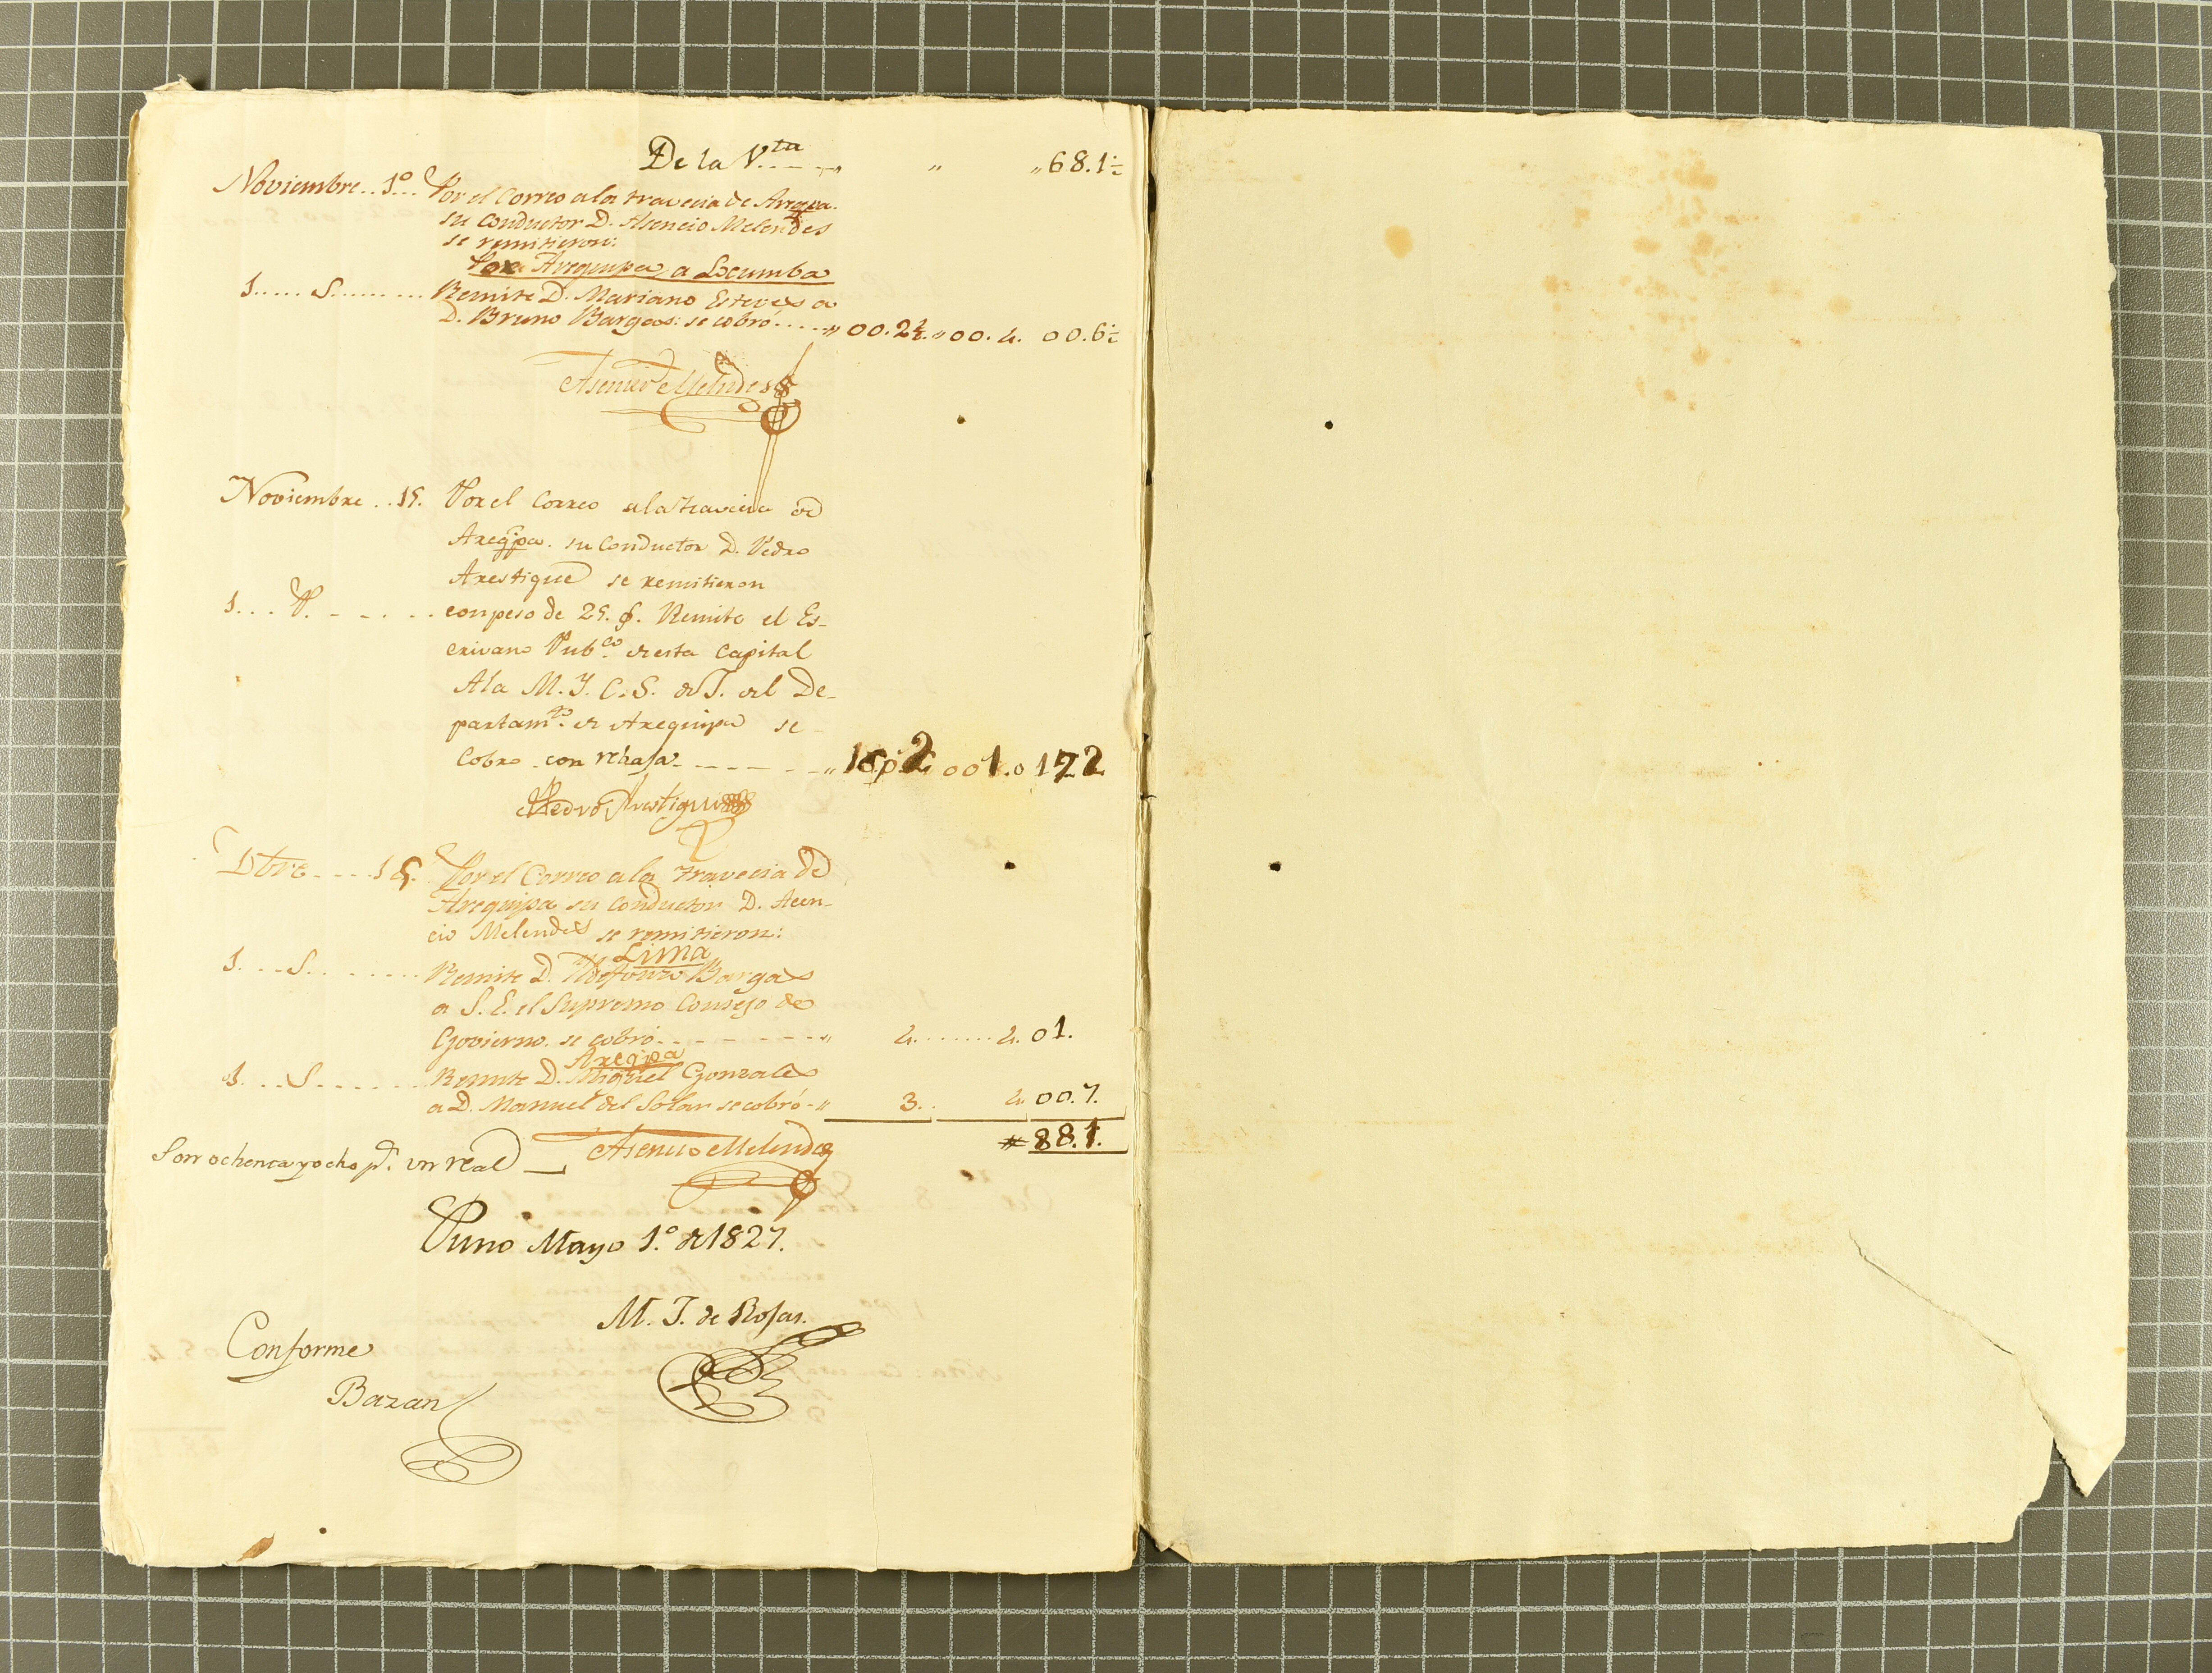 De la V.ta - - - „ „ „68.1½
Noviembre . . 1.º . . Por el Correo ala travecia de Areqpa.
su conductor D. Asencio Melendes
se remitieron:
Por Arequipa, a Locumba
1. . . . . S. . . . . . . . . Remite D. Mariano Esteves a
D. Bruno Bargas: se cobró - - - - - „ 00.2½. „00.4. 00.6½
Asencio Melendes
Noviembre . . 15. Por el Correo ala travecia de
Areqpa. su Conductor D. Pedro
Arestigue se remitieron
1. . . P. - - . - . . con peso de 25. $. Remite el Es-
crivano Pub.co de esta Capital
Ala M. Y. C. S. de J. del De-
partam.to de Arequipa se
Cobro con rebaja - - - - - - - „ 001.0 172
Pedro Arestigue
Dbre - - - - 15. Por el Correo ala travecia de
Arequipa su conductor D. Acen-
cio Melendes se remitieron:
Lima
1. . . S. . . . . . . . Remite D. Ildefonzo Bargas
a S. E. el Supremo Consejo de
Govierno. se cobró - - - - - - - - „ 4. . . . . . . . 4. 01.
Areqpa
1. . . S. . . . . . . Remite D. Miguel Gonzales
a D. Manuel del Solar se cobró - „ 3. 4. 00.7.
# 88.1.
Son ochenta y ocho p.s un real Asencio Melendes
Puno Mayo 1.º de 1827.
M. J. de Rosas.
Conforme
Bazan